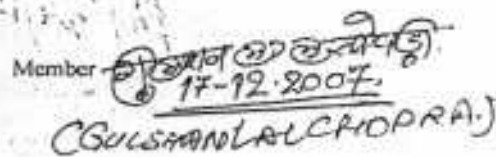 Member
17-12-2007.
(GULSHAN LAL CHOPRA.)